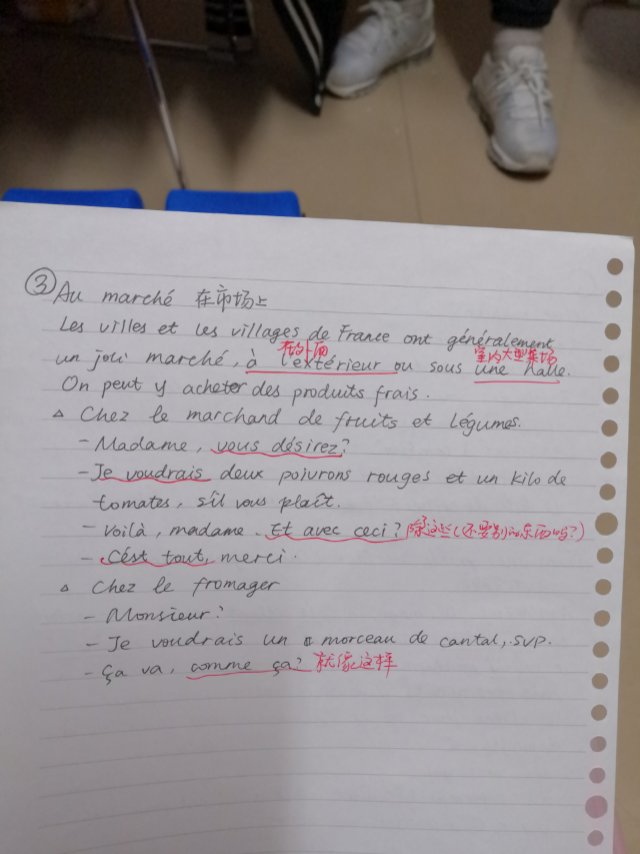 ③ Au marché 在市场上
Les villes et les villages de France ont généralement
在外面 室内大型菜场
un joli marché, à l'extérieur ou sous une halle.
On peut y acheter des produits frais.
△ Chez le marchand de fruits et légumes.
- Madame, vous désirez?
- Je voudrais deux poivrons rouges et un kilo de
tomates, s'il vous plaît.
- Voilà, madame. Et avec ceci? 除这些(还要别的东西吗?)
- C'est tout, merci.
△ Chez le fromager
- Monsieur?
- Je voudrais un morceau de cantal, SVP.
- Ça va, comme ça? 就像这样